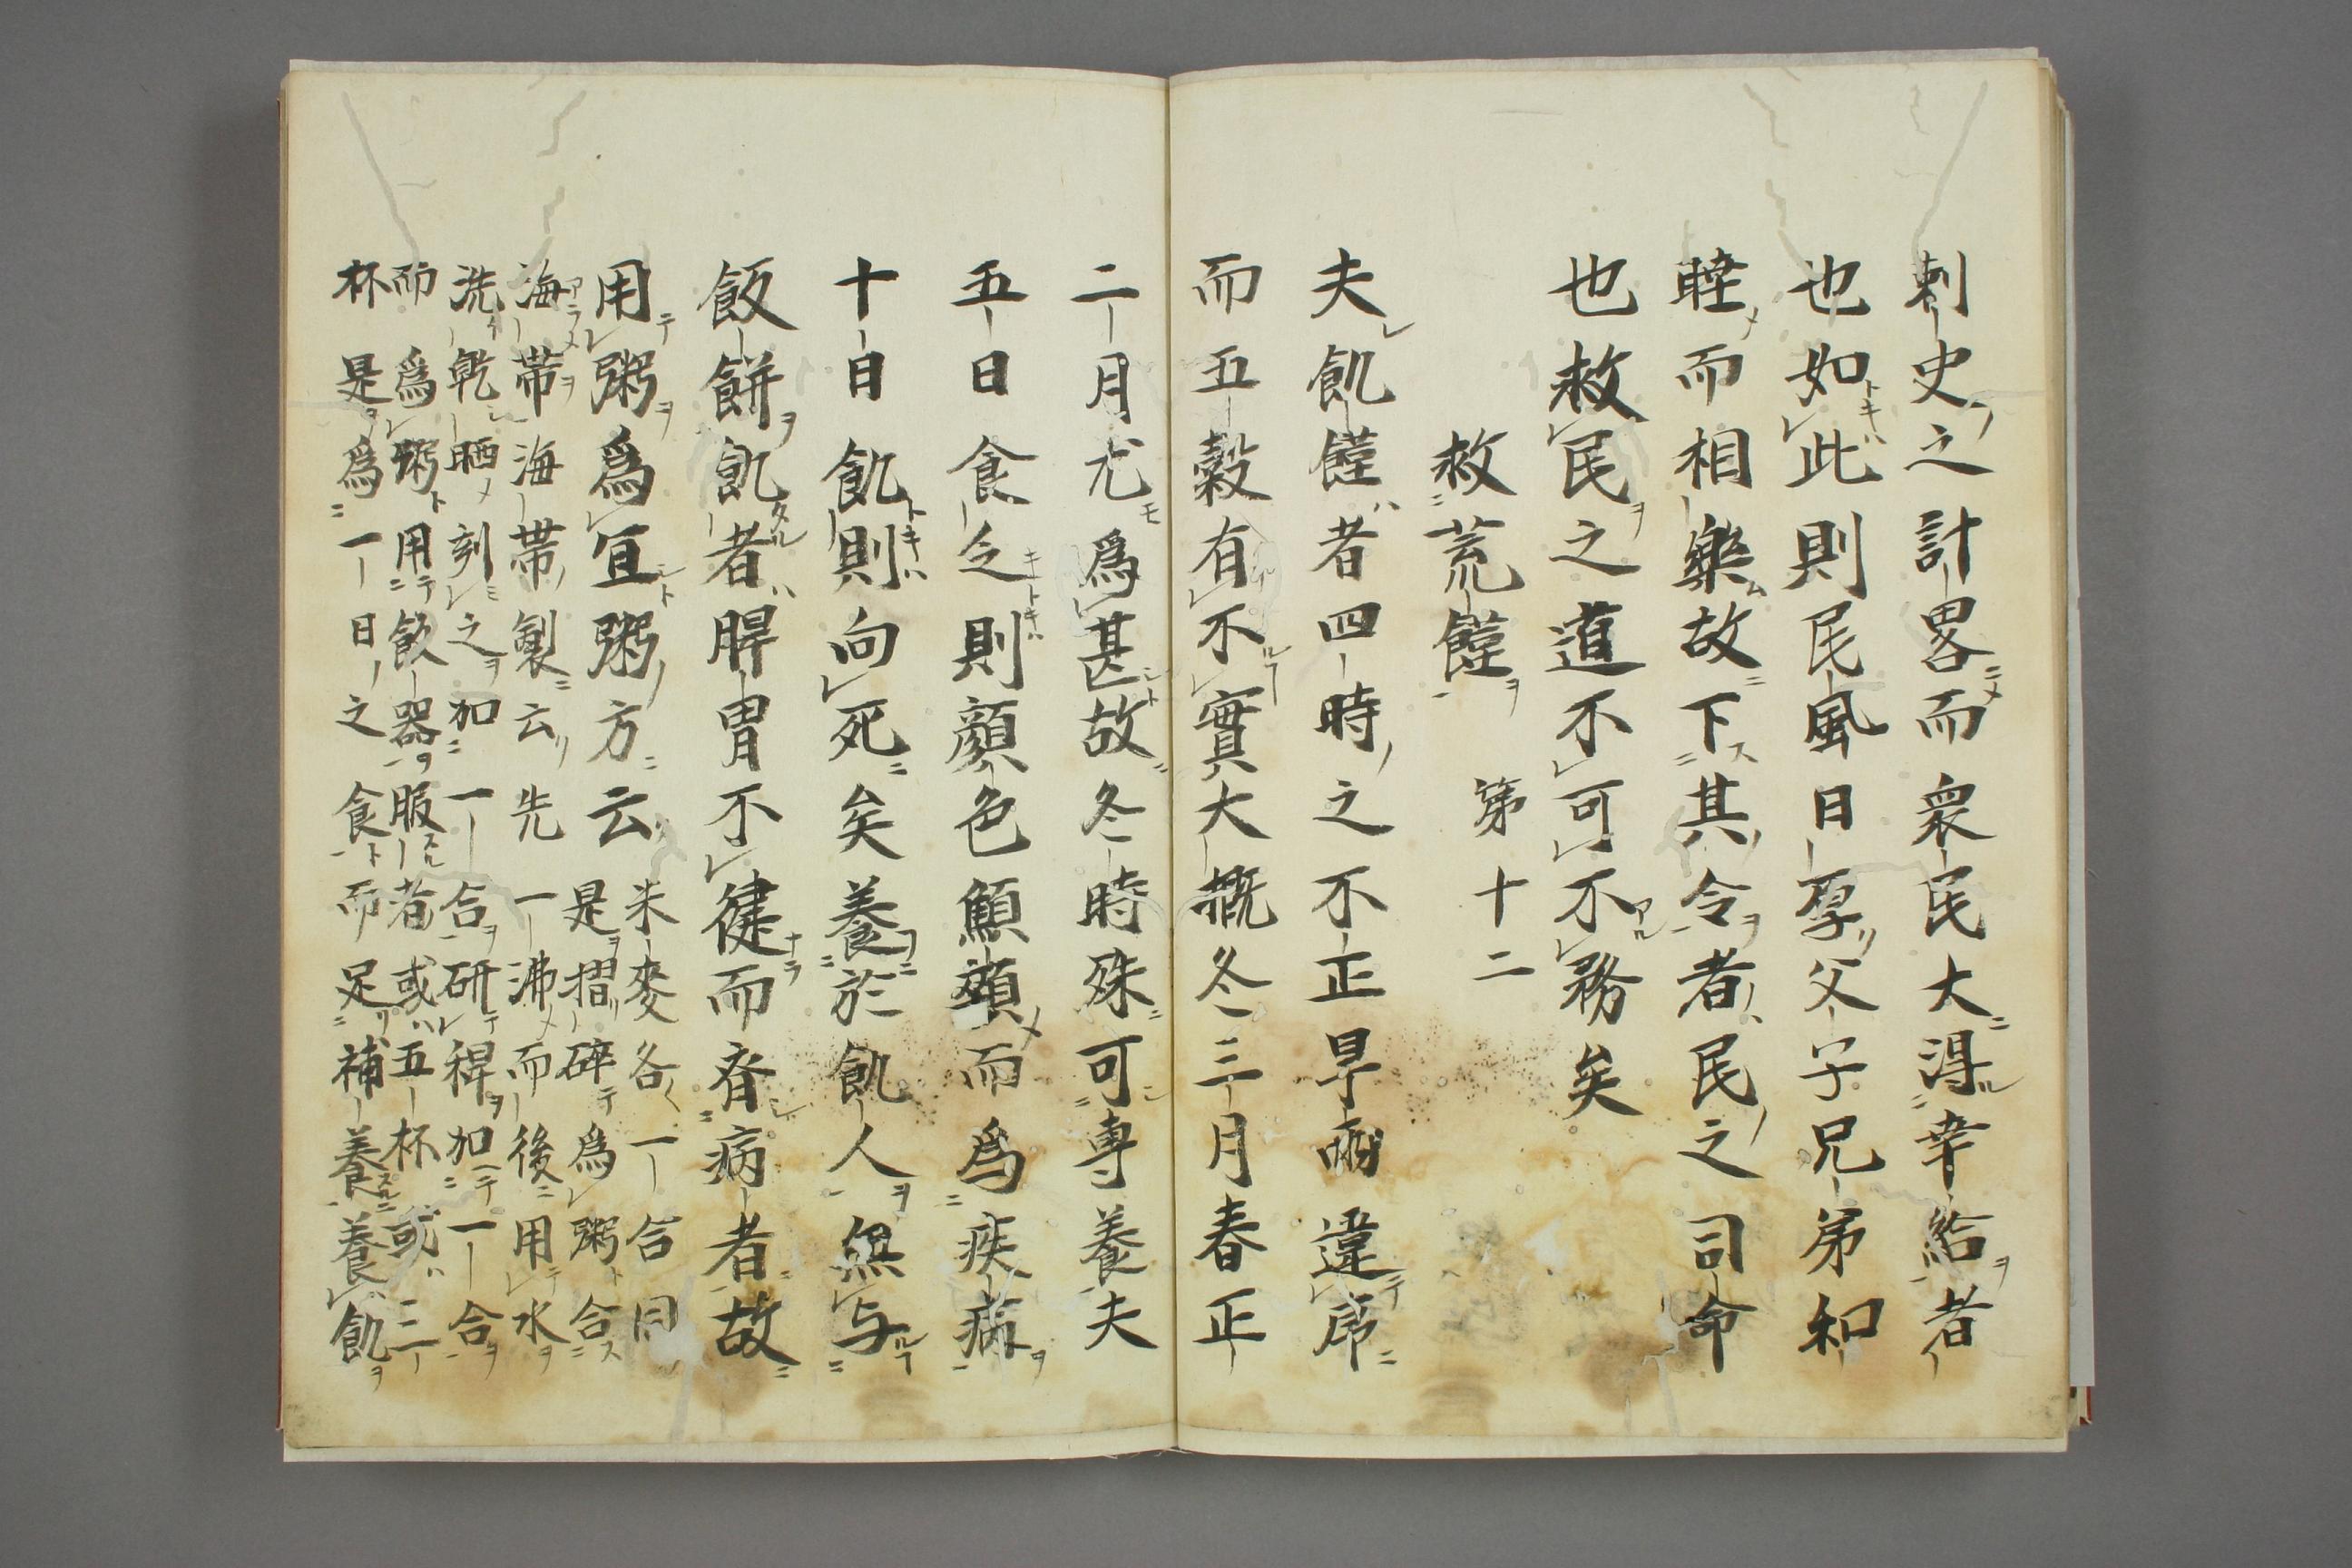 刺史之計畧而衆民大淂幸給者
也如此則民風日厚父子兄弟和
睦而相樂故下其令者民之司命
也救民之道不可不務矣
救荒饉 第十二
夫飢饉者四時之不正旱雨違序
而五穀有不實大概冬三月春正
二月尤爲甚故冬時殊可專養夫
五日食乏則顔色顦顇而爲疾病
十日飢則向死矣養於飢人無与
飯餅飢者脾胃不健而脊病者故
用粥爲宜粥方云
米麥各一合同
是摺碎爲粥合
海帯海帯製云先
一沸而後用水
洗乾晒刻之加一合研稗加一合
而爲粥用飲器服者或五杯或三
杯是爲一日之食而足補養養飢